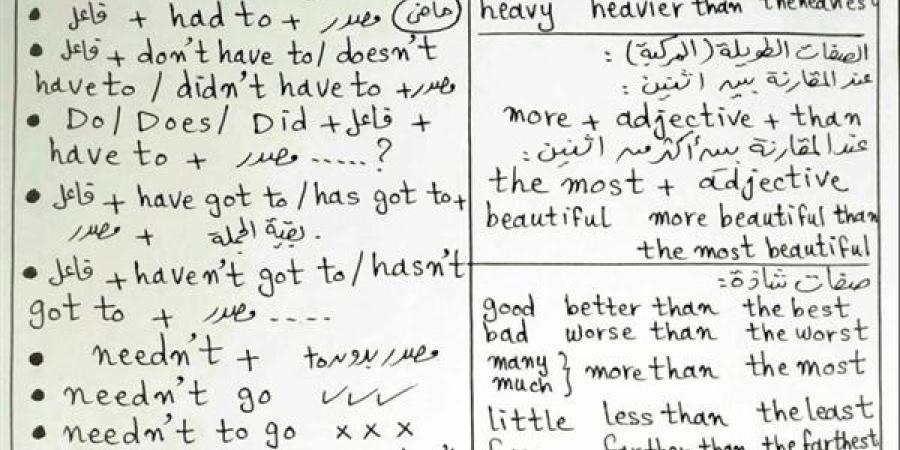 • فاعل + had to + مصدر (ماضى)
• فاعل + don't have to / doesn't
have to / didn't have to + مصدر
• Do / Does / Did + فاعل +
have to + مصدر .....?
• فاعل + have got to / has got to +
مصدر + بقية الجملة .
• فاعل + haven't got to / hasn't
got to + مصدر .....
• needn't + مصدر بدون to
• needn't go ✓✓✓
• needn't to go x x x
heavy heavier than the heaviest
الصفات الطويلة (المركبة) :
عند المقارنة بين اثنين :
more + adjective + than
عند المقارنة بين أكثر من اثنين :
the most + adjective
beautiful more beautiful than
the most beautiful
صفات شاذة :
good better than the best
bad worse than the worst
many
much } more than the most
little less than the least
farther than the farthest